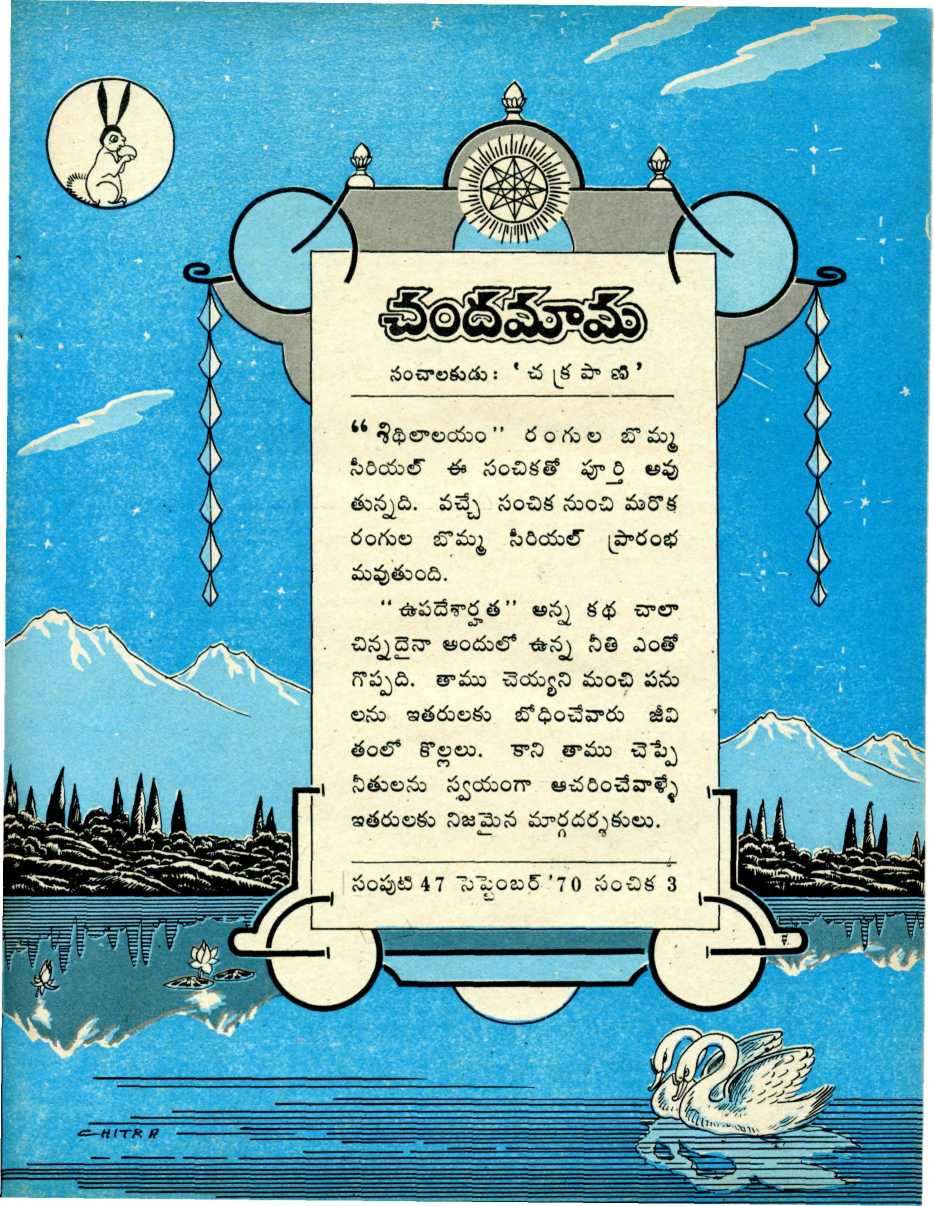 చందమామ
సంచాలకుడు: ‘చక్రపాణి’
“శిథిలాలయం” రంగుల బొమ్మ
సీరియల్ ఈ సంచికతో పూర్తి అవు
తున్నది. వచ్చే సంచిక నుంచి మరొక
రంగుల బొమ్మ సీరియల్ ప్రారంభ
మవుతుంది.
“ఉపదేశార్హత” అన్న కథ చాలా
చిన్నదైనా అందులో ఉన్న నీతి ఎంతో
గొప్పది. తాము చెయ్యని మంచి పను
లను ఇతరులకు బోధించేవారు జీవి
తంలో కొల్లలు. కాని తాము చెప్పే
నీతులను స్వయంగా ఆచరించేవాళ్ళే
ఇతరులకు నిజమైన మార్గదర్శకులు.
సంపుటి 47 సెప్టెంబర్ '70 సంచిక 3
CHITRA